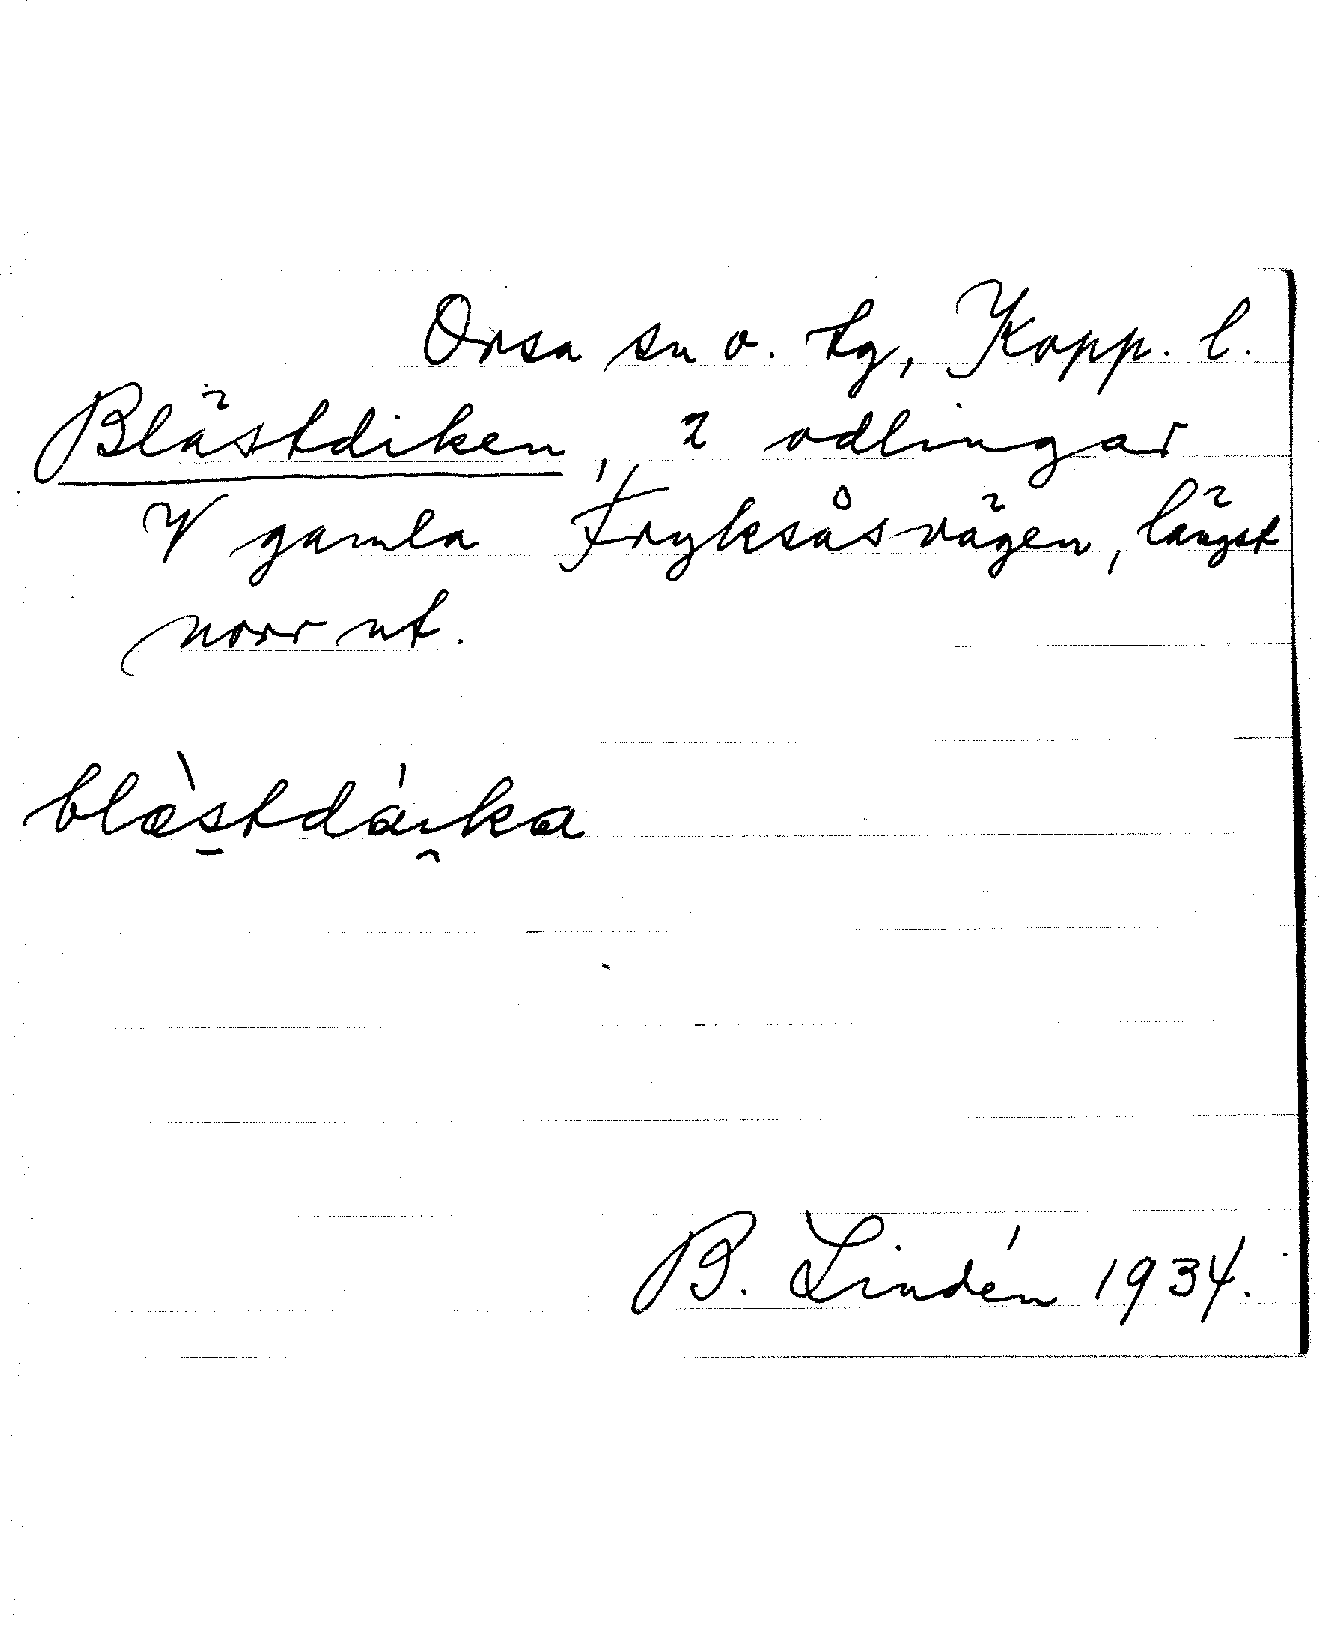 Orsa sn o. tg, Kopp. l.
Blästdiken, 2 odlingar
V gamla Fryksåsvägen, längst
norr ut.
blæ̀stdái̯ka
B. Lindén 1934.